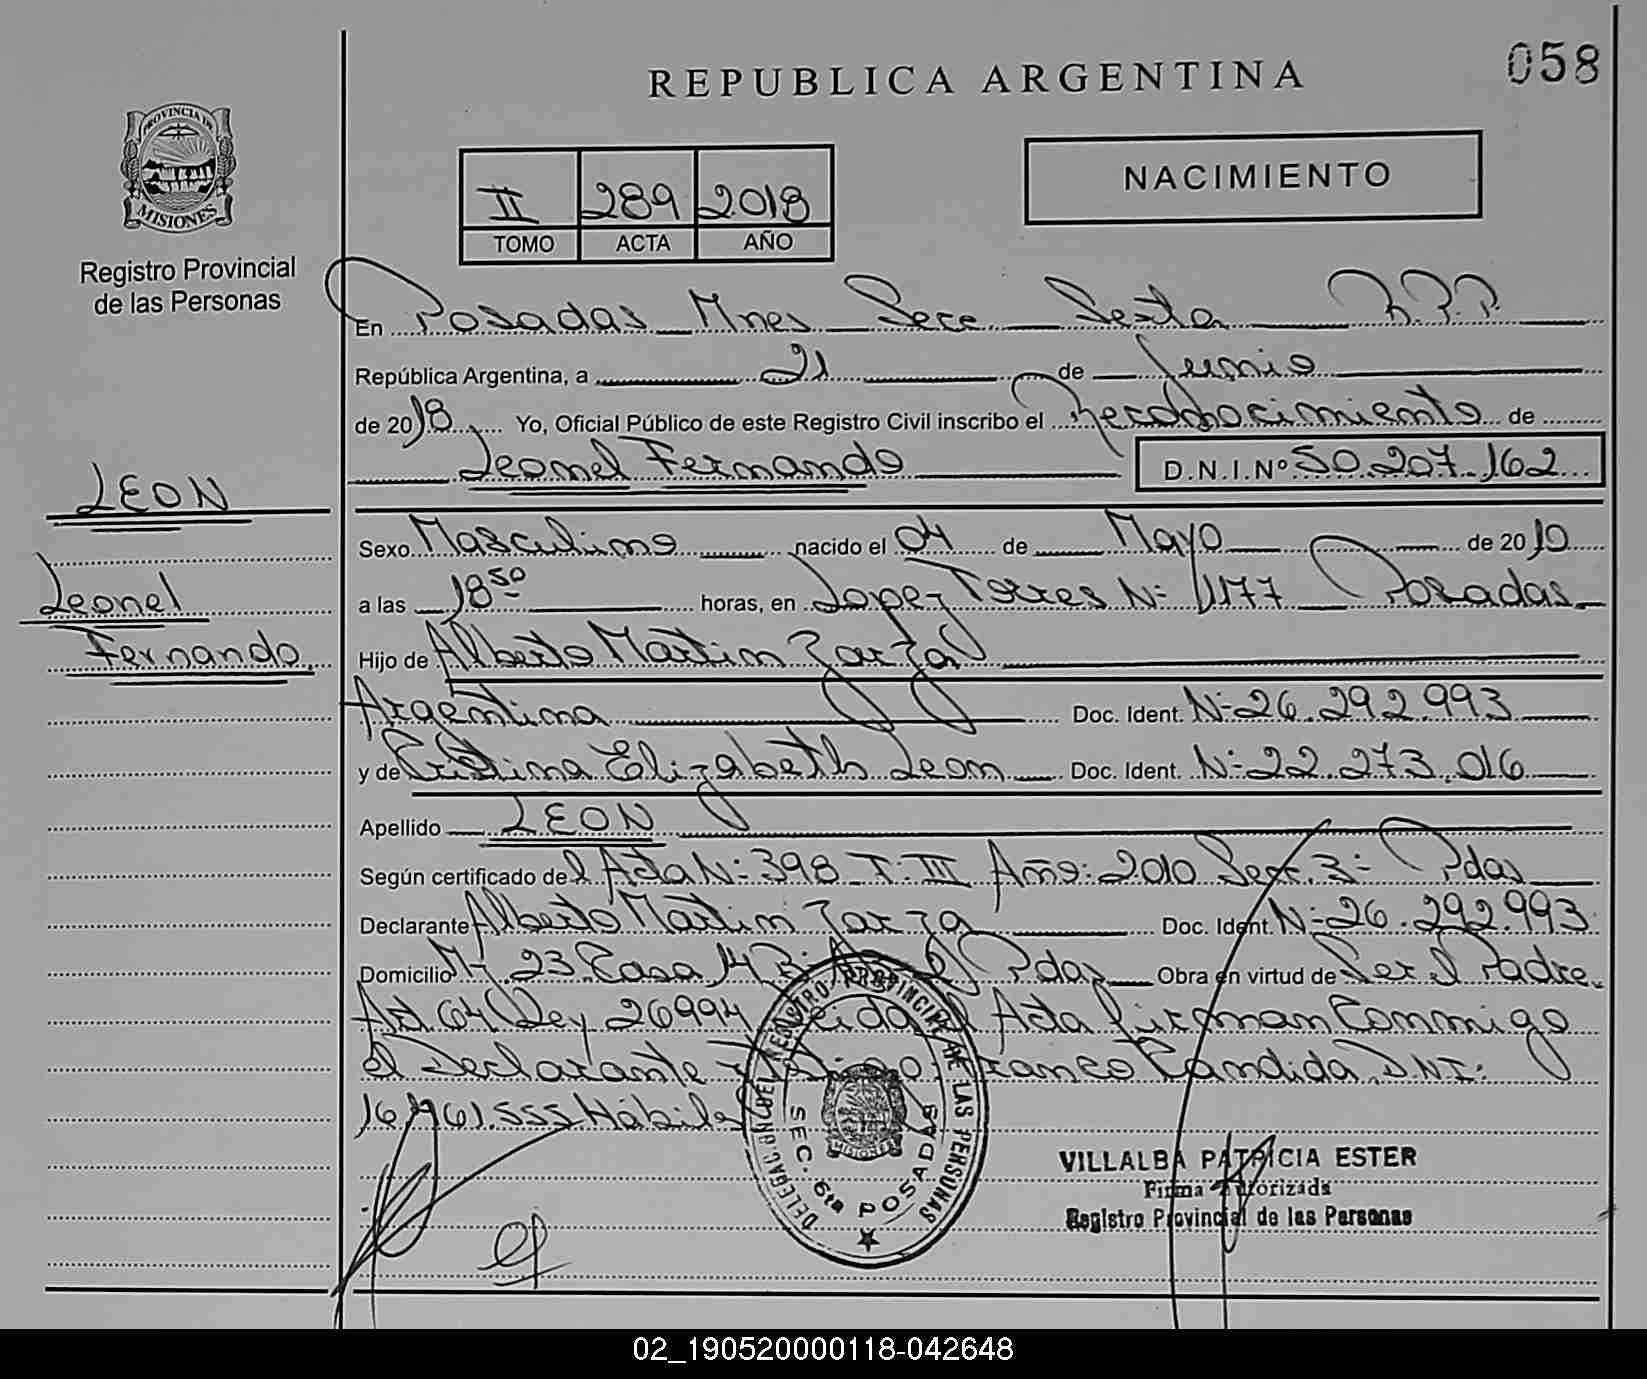 058
REPUBLICA ARGENTINA
PROVINCIA DE
MISIONES
Registro Provincial
de las Personas
II 289 2018
TOMO ACTA AÑO
NACIMIENTO
En Posadas Mnes Secc. Sexta R.P.P.
República Argentina, a 21 de Junio
de 2018 Yo, Oficial Público de este Registro Civil inscribo el Reconocimiento de
Leonel Fernando D.N.I.Nº 50.207.162
LEON
Leonel
Fernando
Sexo Masculino nacido el 04 de Mayo de 2010
a las 18 50 horas, en Lopez Torres Nº 1177 Posadas
Hijo de Alberto Martin Zarza
Argentina Doc. Ident. Nº 26.292.993
y de Cristina Elizabeth Leon Doc. Ident. Nº 22.273.016
Apellido LEON
Según certificado del Acta Nº 398 T. III Año: 2010 Secc. 3º Pdas
Declarante Alberto Martin Zarza Doc. Ident Nº 26.292.993
Domicilio 23 Casa 14 Pdas Obra en virtud de Ser el Padre.
Art. 64 Ley 26994 el Acta firman Conmigo
el Declarante Franco Candida D.N.I:
555 Hábiles
DELEGACION DEL REGISTRO PROVINCIAL DE LAS PERSONAS
SEC. 6ta POSADAS
MISIONES
VILLALBA PATRICIA ESTER
Firma Autorizada
Registro Provincial de las Personas
02_190520000118-042648